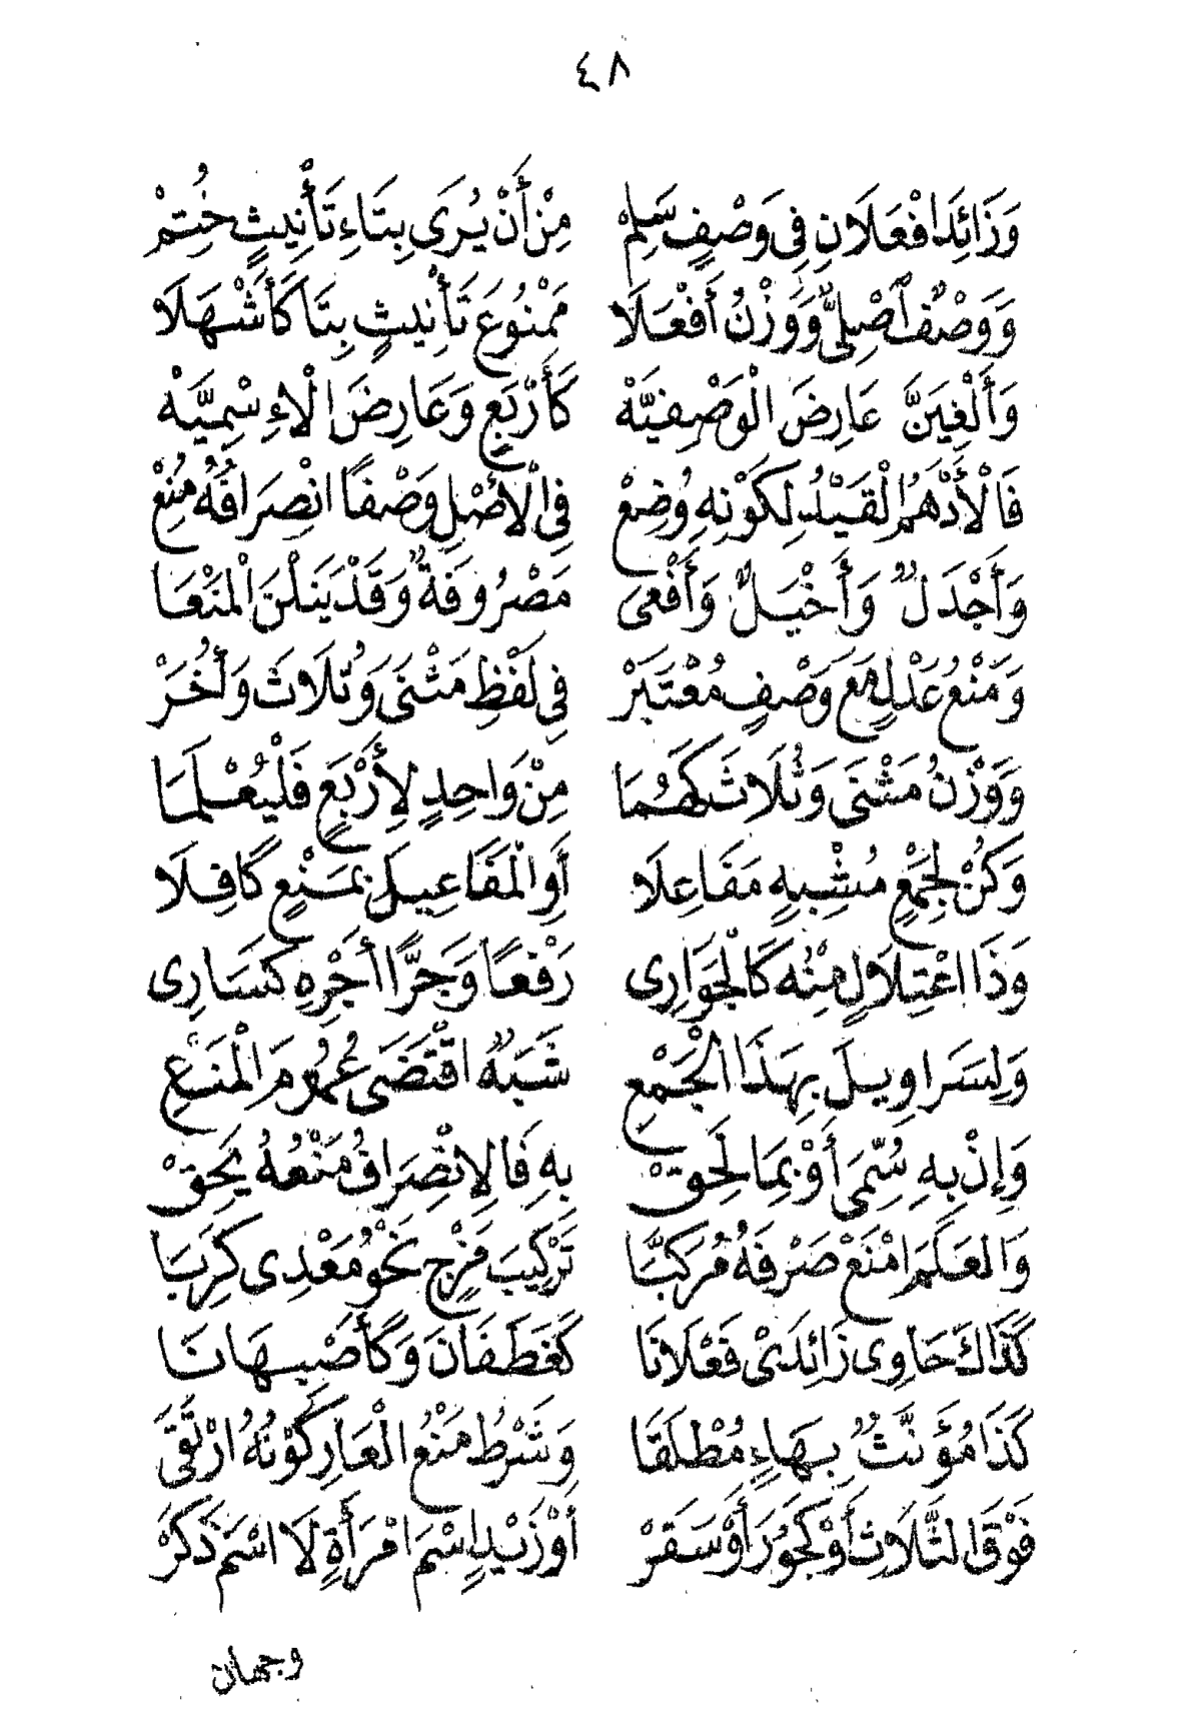 ٤٨
وَزَائِدَا فْعَلَانِ فِي وَصْفٍ سَلِمْ مِنْ أَنْ يُرَى بِتَاءِ تَأْنِيثٍ خُتِمْ
وَوَصْفٌ أصْلِيٌّ وَوَزْنُ أَفْعَلَا مَمْنُوعَ تَأْنِيثٍ بِتَا كَأَشْهَلَا
وَأَلْغِيَنَّ عَارِضَ الْوَصْفِيَّهْ كَأَرْبَعٍ وَعَارِضَ الْإِسْمِيَّهْ
فَالْأَدْهَمُ الْقَيْدُ لِكَوْنِهِ وُضِعْ فِي الْأَصْلِ وَصْفًا انْصِرَافُهُ مُنِعْ
وَأَجْدَلٌ وَأَخْيَلٌ وَأَفْعَى مَصْرُوفَةٌ وَقَدْ يَنَلْنَ الْمَنْعَا
وَمَنْعُ عَدْلٍ مَعَ وَصْفٍ مُعْتَبَرْ فِي لَفْظِ مَثْنَى وَثُلَاثَ وَأُخَرْ
وَوَزْنُ مَثْنَى وَثُلَاثَ كَهُمَا مِنْ وَاحِدٍ لِأَرْبَعٍ فَلْيُعْلَمَا
وَكُنْ لِجَمْعٍ مُشْبِهٍ مَفَاعِلَا أَوِ الْمَفَاعِيلَ بِمَنْعٍ كَافِلَا
وَذَا اعْتِلَالٍ مِنْهُ كَالْجَوَارِي رَفْعًا وَجَرًّا أَجْرِهِ كَسَارِي
وَلِسَرَاوِيلَ بِهَذَا الْجَمْعِ شَبَهٌ اقْتَضَى عُمُومَ الْمَنْعِ
وَإِنْ بِهِ سُمِّيَ أَوْ بِمَا لَحِقْ بِهِ فَالِانْصِرَافُ مَنْعُهُ يَحِقْ
وَالْعَلَمَ امْنَعْ صَرْفَهُ مُرَكَّبَا تَرْكِيبَ مَزْجٍ نَحْوُ مَعْدِي كَرِبَا
كَذَاكَ حَاوِي زَائِدَيْ فَعْلَانَا كَغَطَفَانَ وَكَأَصْبِهَانَا
كَذَا مُؤَنَّثٌ بِهَاءٍ مُطْلَقَا وَشَرْطُ مَنْعُ الْعَارِ كَوْنُهُ ارْتَقَى
فَوْقَ الثَّلَاثِ أَوْ كَجُورَ أَوْ سَقَرْ أَوْ زَيْدٍ اسْمَ امْرَأَةٍ لَا اسْمَ ذَكَرْ
وجهان